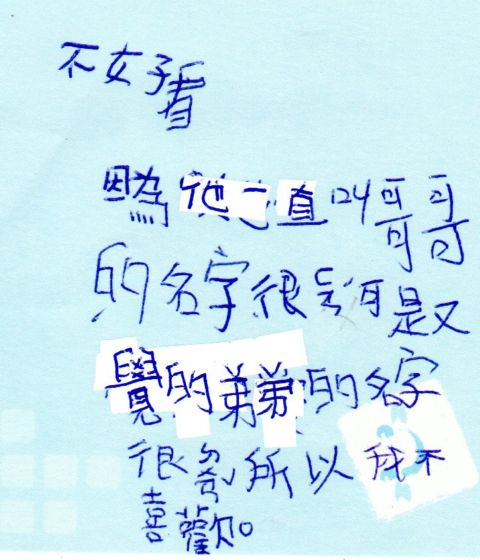 不好看
因為他一直叫哥哥
的名字很長可是又
覺的弟弟的名字
很所以我不
喜歡。